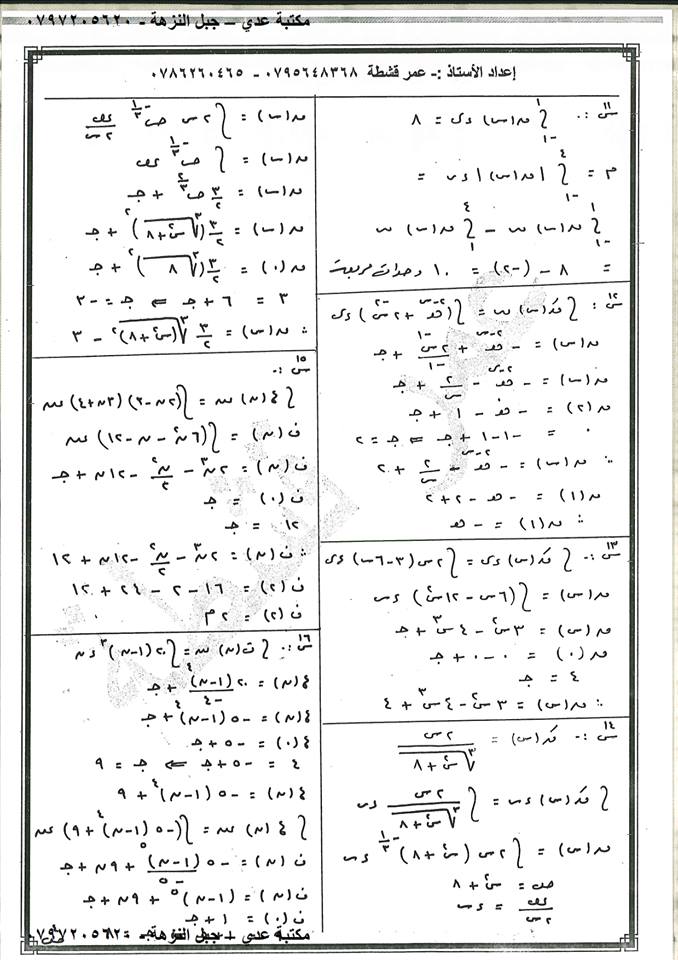 مكتبة عدي – جبل النزهة - ٠٧٩٧٢٠٥٦٢٠
إعداد الأستاذ :- عمر قشطة ٠٧٩٥٦٤٨٣٦٨ - ٠٧٨٦٢٦٠٤٦٥
س١١ :. ∫ من -١ إلى ١ ق(س) ءس = ٨
م = ∫ من -١ إلى ٤ |ق(س)| ءس =
∫ من -١ إلى ١ ق(س) ءس - ∫ من ١ إلى ٤ ق(س) ءس
= ٨ - (-٢) = ١٠ وحدات مربعة
س١٢ :. ∫ قَ(س) ءس = ∫ (هـ^(٢-س) + ٢س^-٢) ءس
ق(س) = - هـ^(٢-س) + ٢س^-١/-١ + جـ
ق(س) = - هـ^(٢-س) - ٢/س + جـ
ق(٢) = - هـ^٠ - ١ + جـ
٠ = -١-١ + جـ ⇐ جـ = ٢
∴ ق(س) = - هـ^(٢-س) - ٢/س + ٢
ق(١) = - هـ - ٢+٢
∴ ق(١) = - هـ
س١٣ :- ∫ قَ(س) ءس = ∫ ٢س(٣-٦س) ءس
ق(س) = ∫ (٦س - ١٢س^٢) ءس
ق(س) = ٣س^٢ - ٤س^٣ + جـ
ق(٠) = ٠-٠ + جـ
٤ = جـ
∴ ق(س) = ٣س^٢ - ٤س^٣ + ٤
س١٤ :- قَ(س) = ٢س / ∛(س^٢+٨)
∫ قَ(س) ءس = ∫ ٢س / ∛(س^٢+٨) ءس
ق(س) = ∫ ٢س (س^٢+٨)^(-١/٣) ءس
ص = س^٢ + ٨
ءص/٢س = ءس
ق(س) = ∫ ٢س ص^(-١/٣) ءص/٢س
ق(س) = ∫ ص^(-١/٣) ءص
ق(س) = ٣/٢ ص^(٢/٣) + جـ
ق(س) = ٣/٢ (∛(س^٢+٨))^٢ + جـ
ق(٠) = ٣/٢ (∛٨)^٢ + جـ
٣ = ٦ + جـ ⇐ جـ = -٣
∴ ق(س) = ٣/٢ ∛(س^٢+٨)^٢ - ٣
س١٥ :-
∫ ع(ن) ءن = ∫ (٢ن-٣)(٣ن+٤) ءن
ف(ن) = ∫ (٦ن^٢ - ن - ١٢) ءن
ف(ن) = ٢ن^٣ - ن^٢/٢ - ١٢ن + جـ
ف(٠) = جـ
١٢ = جـ
∴ ف(ن) = ٢ن^٣ - ن^٢/٢ - ١٢ن + ١٢
ف(٢) = ١٦ - ٢ - ٢٤ + ١٢
ف(٢) = ٢ م
س١٦ :. ∫ ت(ن) ءن = ∫ ٢٠(١-ن)^٣ ءن
ع(ن) = ٢٠(١-ن)^٤/-٤ + جـ
ع(ن) = -٥(١-ن)^٤ + جـ
ع(٠) = -٥ + جـ
٤ = -٥ + جـ ⇐ جـ = ٩
ع(ن) = -٥(١-ن)^٤ + ٩
∫ ع(ن) ءن = ∫ (-٥(١-ن)^٤ + ٩) ءن
ف(ن) = -٥(١-ن)^٥/-٥ + ٩ن + جـ
ف(ن) = (١-ن)^٥ + ٩ن + جـ
ف(٠) = ١ + جـ
مكتبة عدي - جبل النزهة - ٠٧٩٧٢٠٥٦٢٠